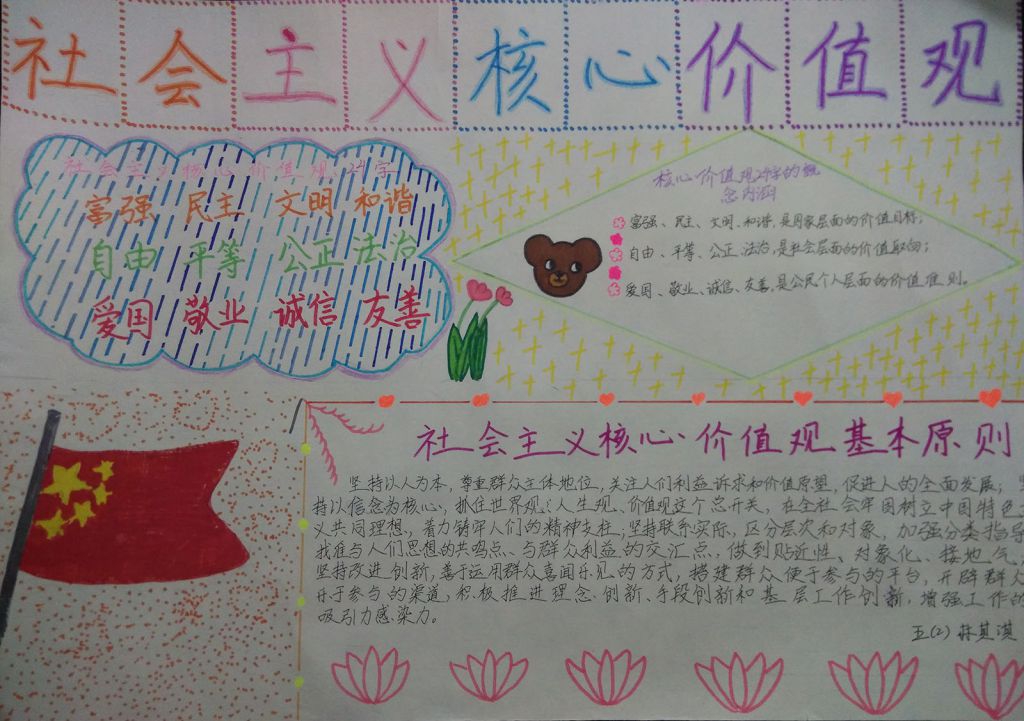 社会主义核心价值观
社会主义核心价值观24字
富强 民主 文明 和谐
自由 平等 公正 法治
爱国 敬业 诚信 友善
核心价值观24字的概
念内涵
富强、民主、文明、和谐,是国家层面的价值目标;
自由、平等、公正、法治,是社会层面的价值取向;
爱国、敬业、诚信、友善,是公民个人层面的价值准则。
社会主义核心价值观基本原则
坚持以人为本,尊重群众主体地位,关注人们利益诉求和价值原望,促进人的全面发展;坚
持以信念为核心,抓住世界观、人生观、价值观这个总开关,在全社会牢固树立中国特色
义共同理想,着力铸牢人们的精神支柱;坚持联系实际,区分层次和对象,加强分类指导
找准与人们思想的共鸣点、与群众利益的交汇点,做到贴近性、对象化、接地气
坚持改进创新,善于运用群众喜闻乐见的方式,搭建群众便于参与的平台,开辟群众
乐于参与的渠道,积极推进理念创新、手段创新和基层工作创新,增强工作的
吸引力感染力。
五(2) 其淇